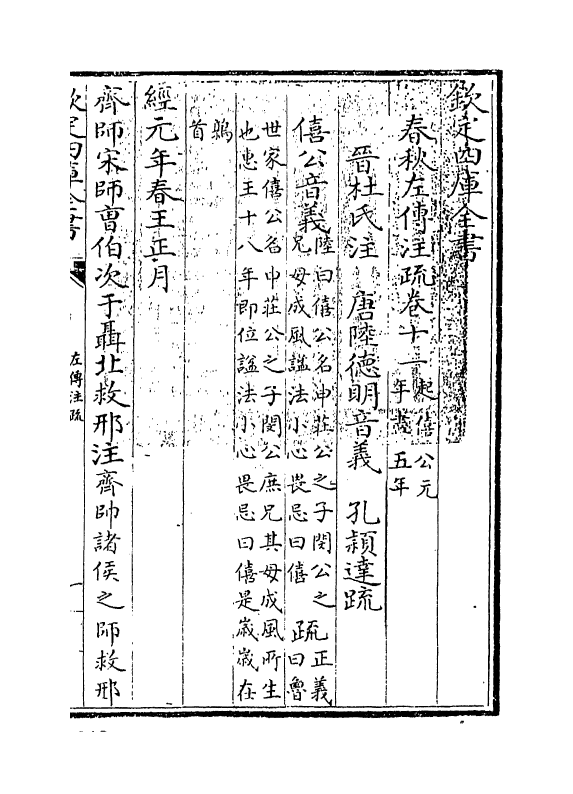 欽定四庫全書
春秋左傳注疏卷十一 起僖公元年盡五年
晉杜氏注 唐陸德明音義 孔穎達疏
僖公音義 陸曰僖公名申莊公之子閔公之兄母成風諡法小心畏忌曰僖 疏 正義曰魯
世家僖公名申莊公之子閔公庶兄其母成風所生也惠王十八年即位諡法小心畏忌曰僖是歲歲在
鶉首
經元年春王正月
齊師宋師曹伯次于聶北救邢注齊帥諸侯之師救邢
欽定四庫全書
左傳注疏
一